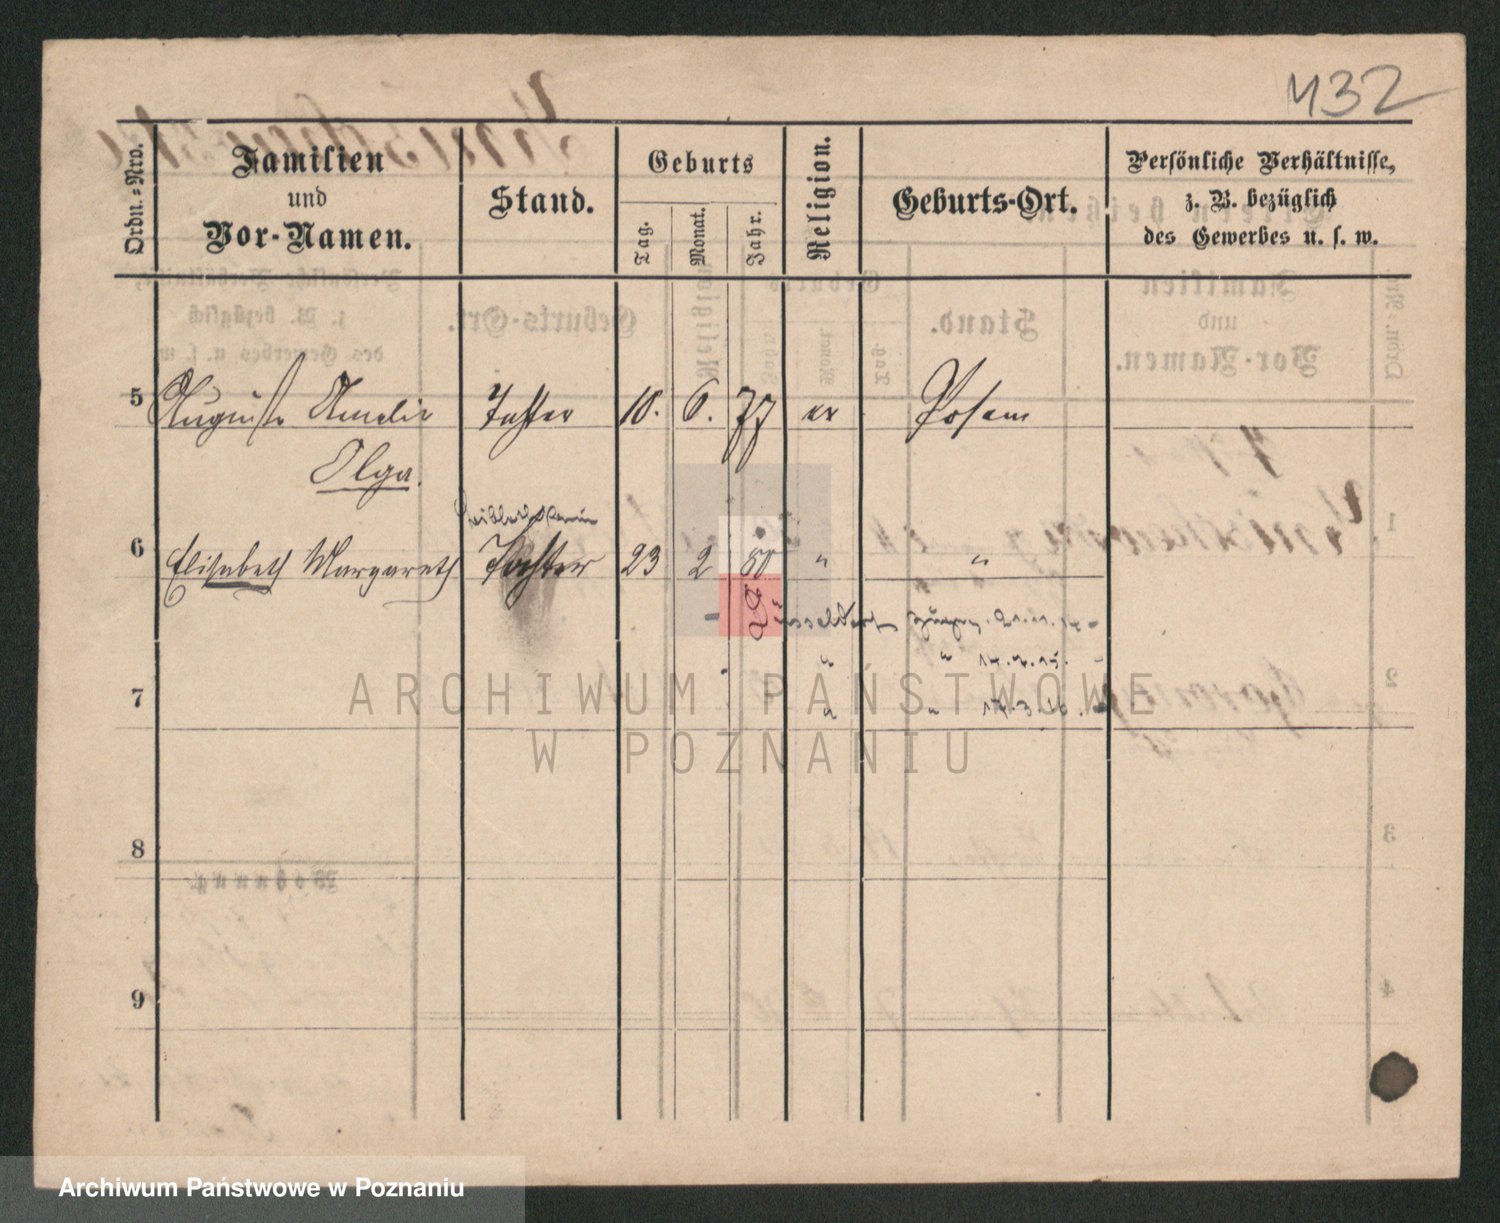 432
Ordn.-Nro.
Familien
und
Vor-Namen.
Stand.
Geburts
Tag.
Monat.
Jahr.
Religion.
Geburts-Ort.
Persönliche Verhältnisse,
z. B. bezüglich
des Gewerbes u. s. w.
5 Auguste Amelie Tochter 10. 6. 77 ev Posen
Olga.
6 Elisabeth Margareth Tochter 23 2 80 " "
Düsseldorf
" " 14.4.15.
7
" "
8
9
ARCHIWUM PAŃSTWOWE
W POZNANIU
Archiwum Państwowe w Poznaniu